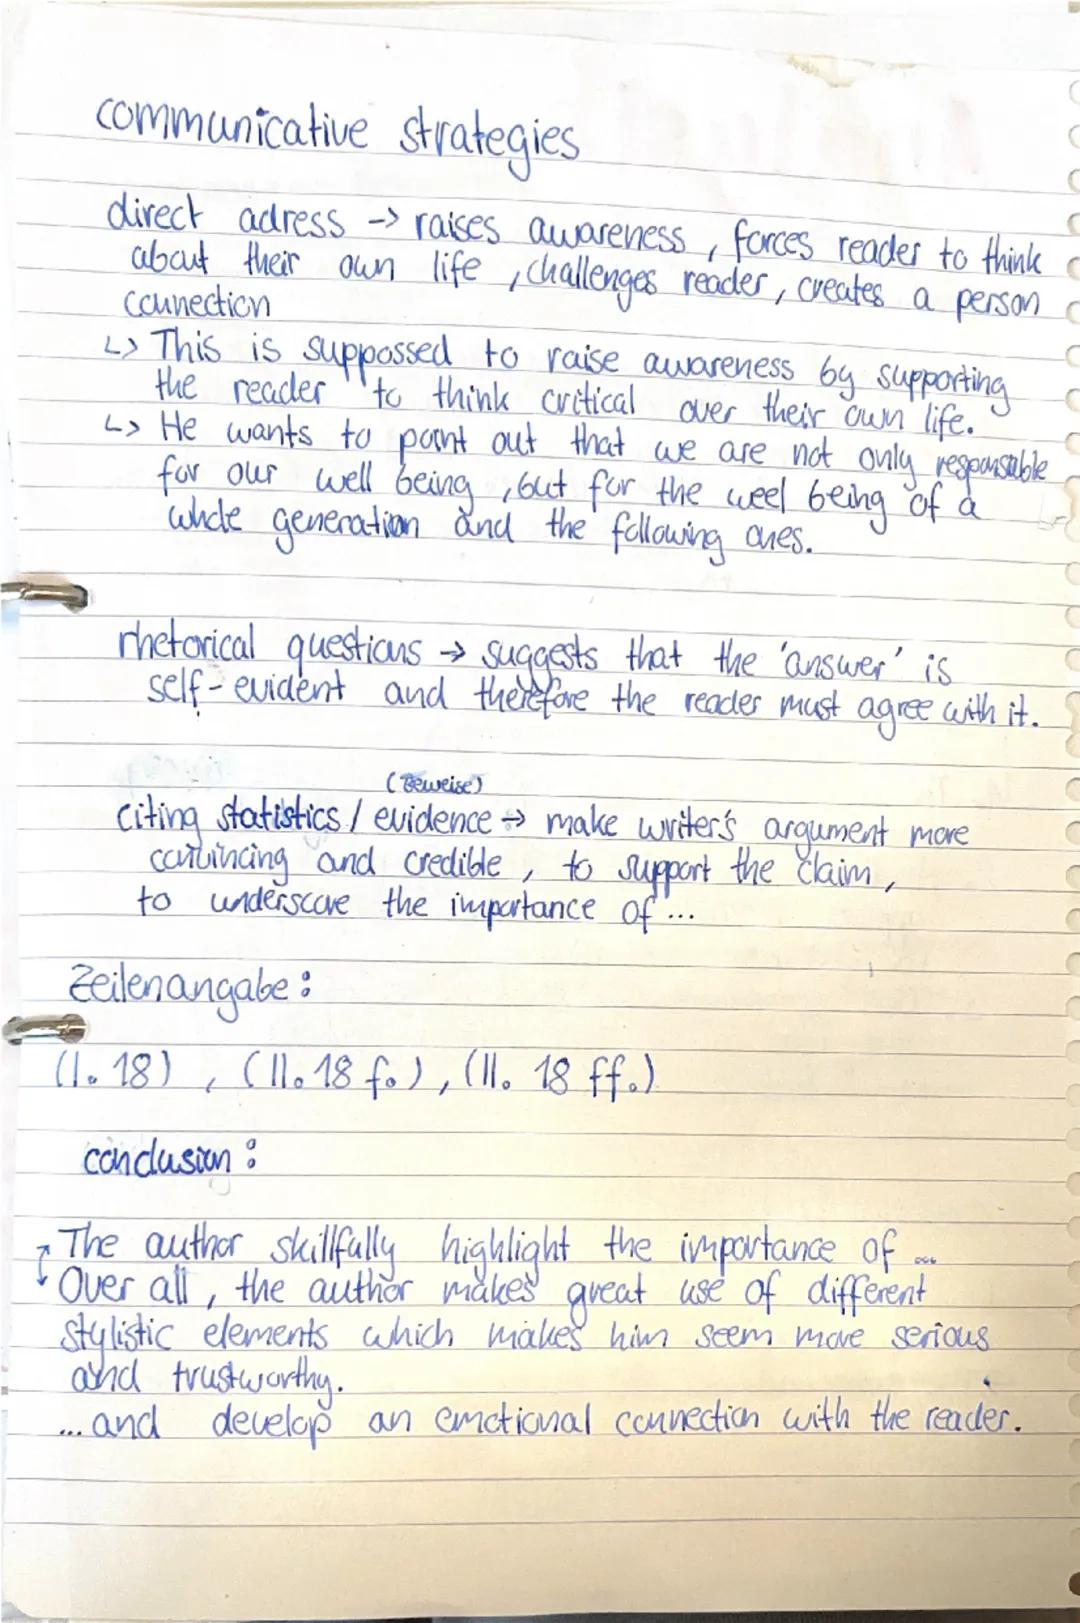 communicative strategies
direct adress -> raises awareness, forces reader to think
about their own life, challenges reader, creates a person
connection
↳ This is suppossed to raise awareness by supporting
the reader to think critical over their own life.
↳ He wants to point out that we are not only responsable
for our well being, but for the weel being of a
whole generation and the following ones.
rhetorical questions → suggests that the 'answer' is
self-evident and therefore the reader must agree with it.
(Beweise)
citing statistics / evidence → make writer's argument more
convincing and credible, to support the claim,
to underscore the importance of ...
Zeilenangabe:
(l. 18), (ll. 18 f.), (ll. 18 ff.)
conclusion:
The author skillfully highlight the importance of ...
Over all, the author makes great use of different
stylistic elements which makes him seem more serious
and trustworthy.
... and develop an emotional connection with the reader.